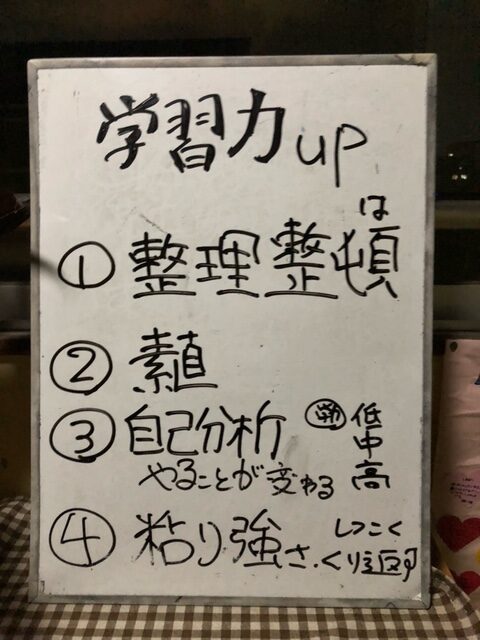 学習力up
① 整理整頓は
② 素直
③ 自己分析 低 中 高
やることが変わる
④ 粘り強さ. しつこく くり返す